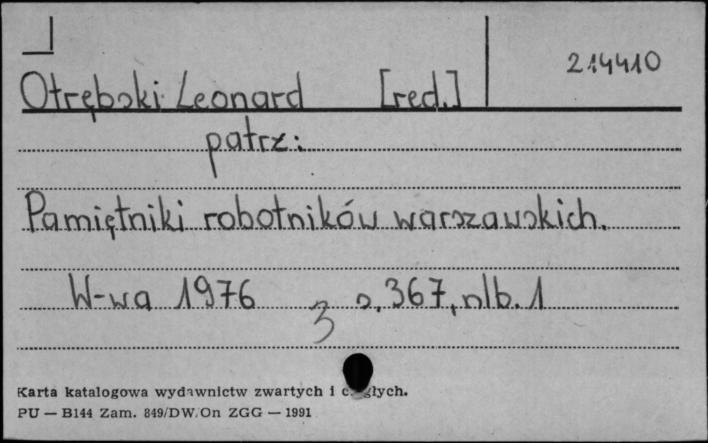 214410
Otrębski Leonard [red.]
patrz:
Pamiętniki robotników warszawskich.
W-wa 1976 s. 367, nlb. 1
3
Karta katalogowa wydawnictw zwartych i ciągłych.
PU — B144 Zam. 849/DW/On ZGG — 1991